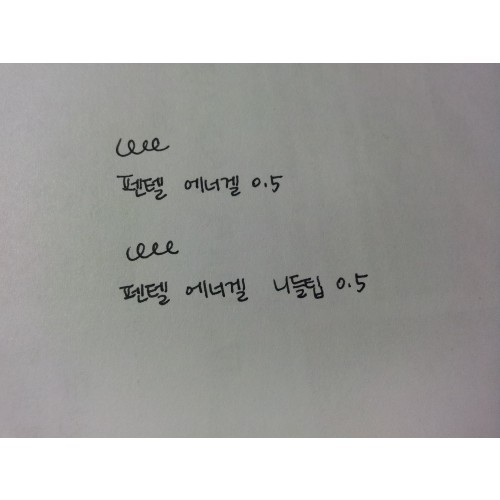 펜텔 에너겔 0.5
펜텔 에너겔 니들팁 0.5